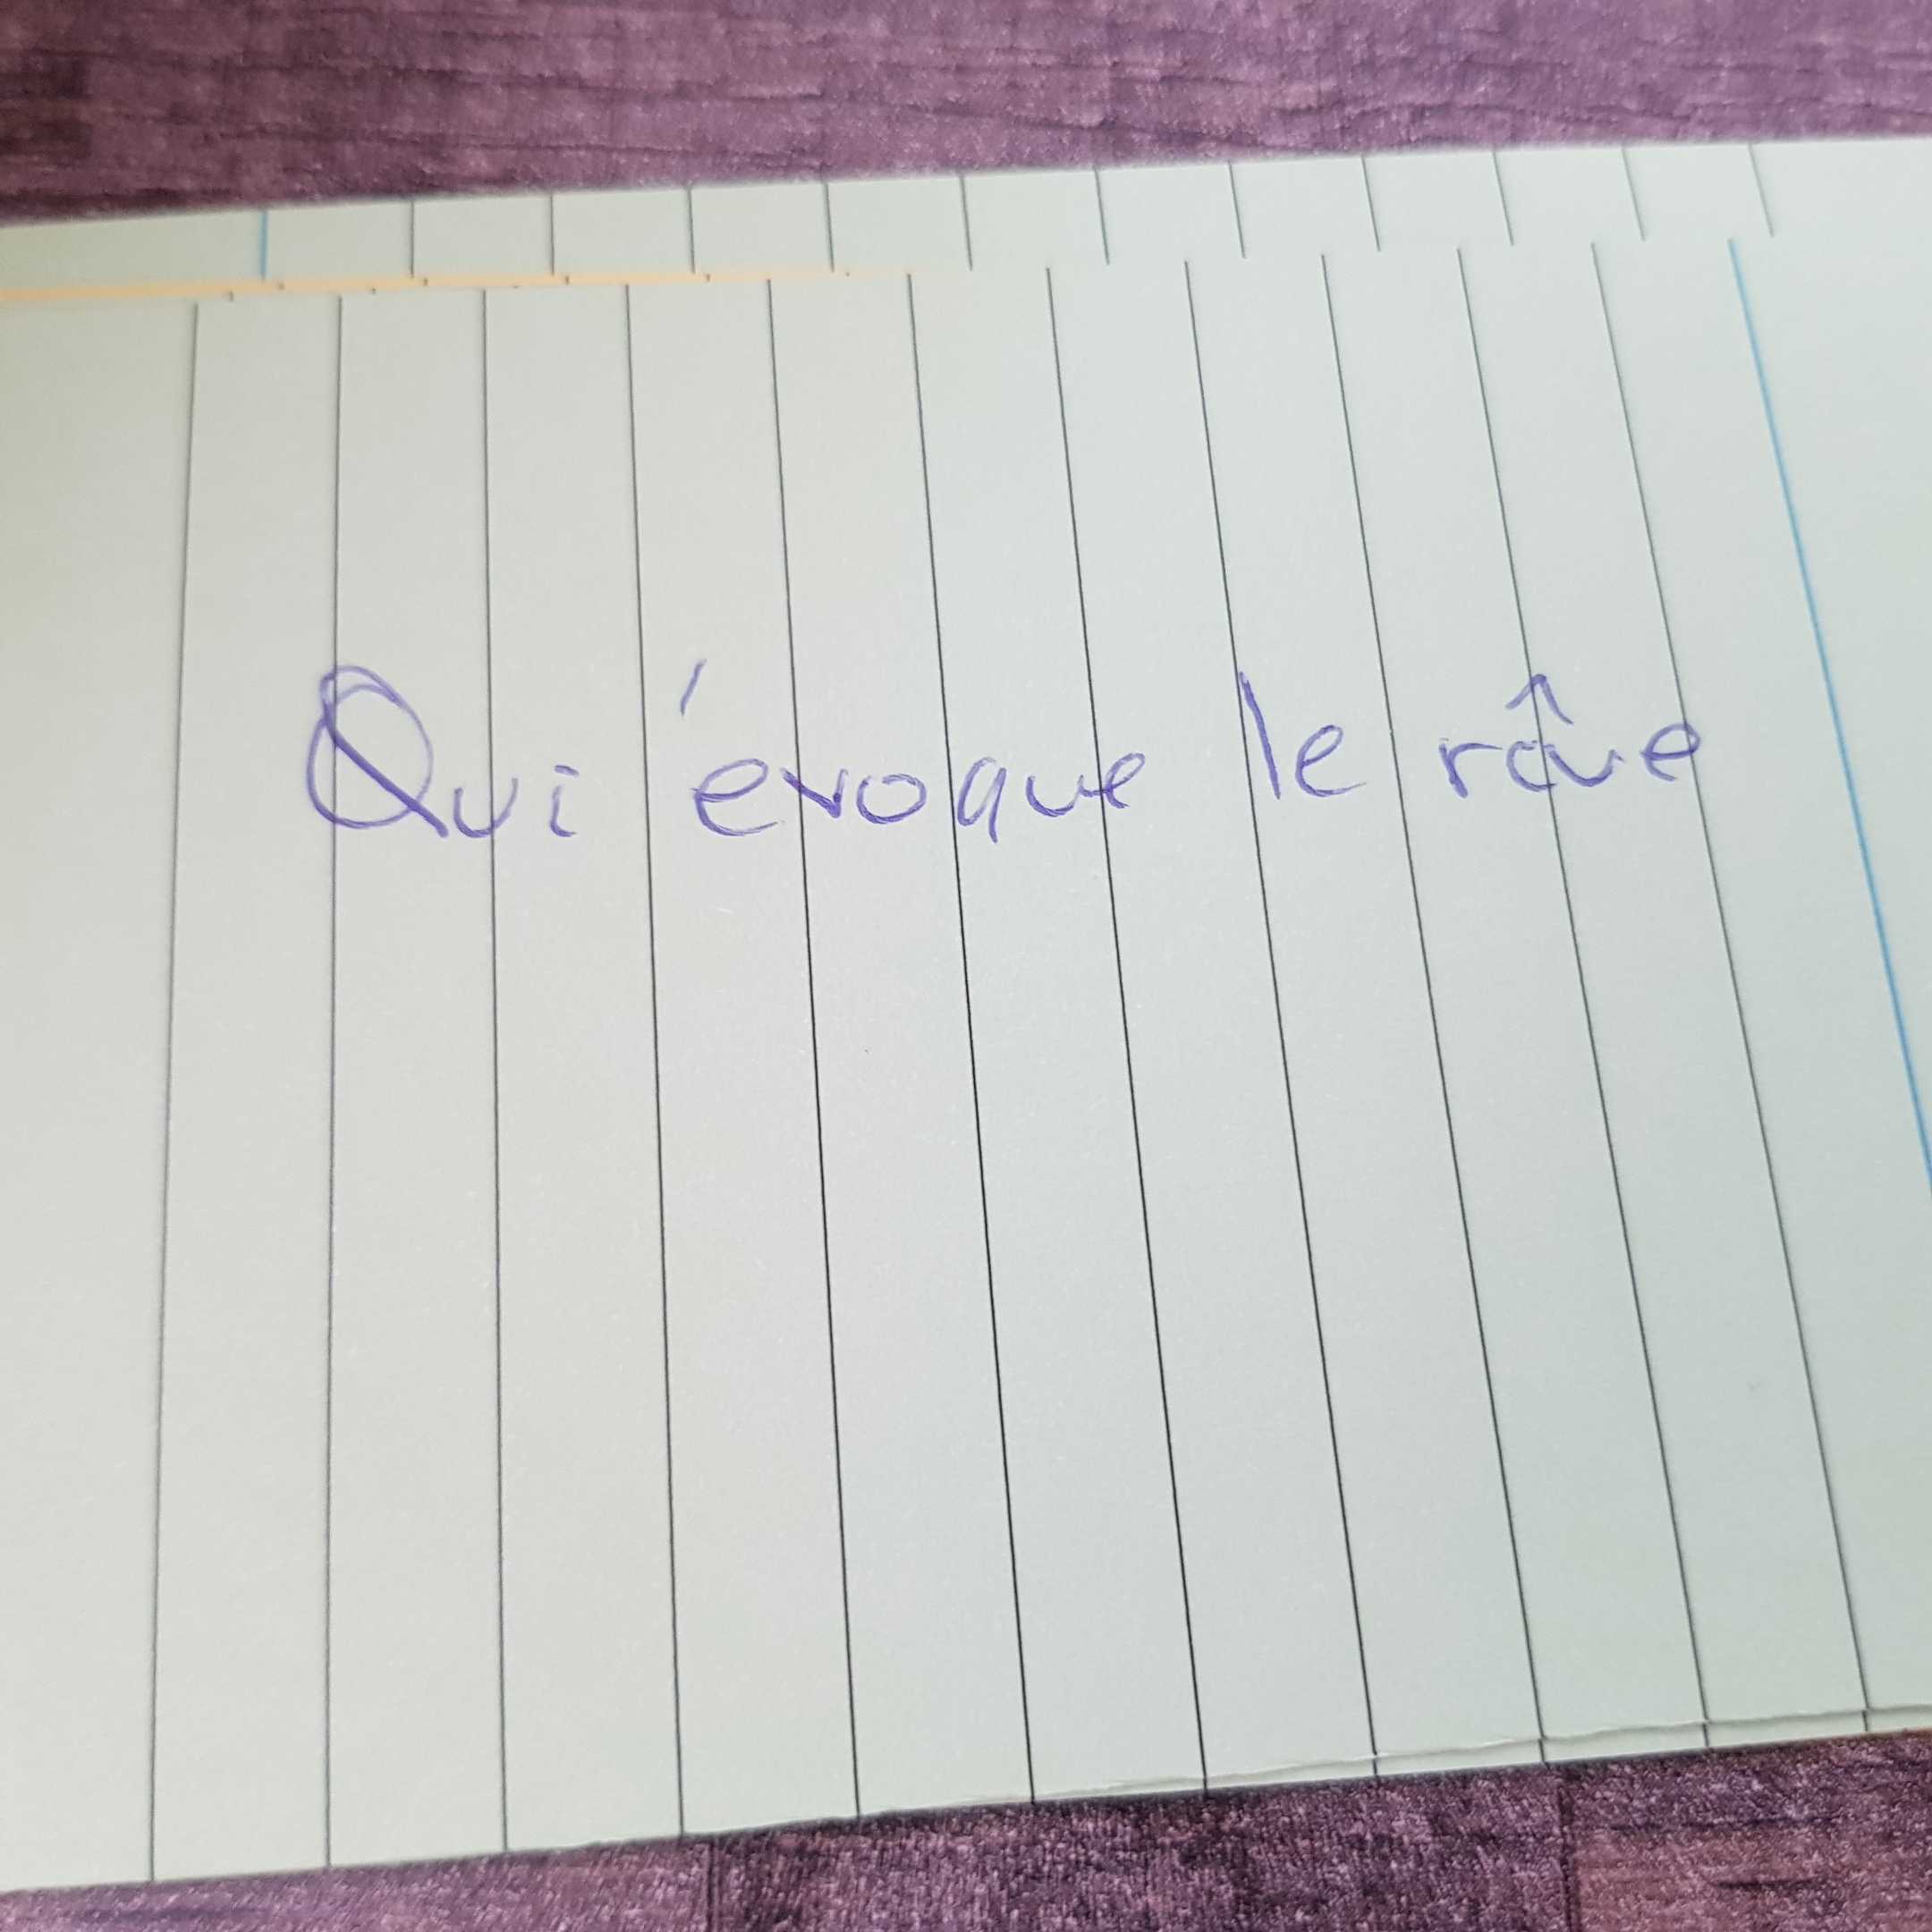 Qui évoque le rêve